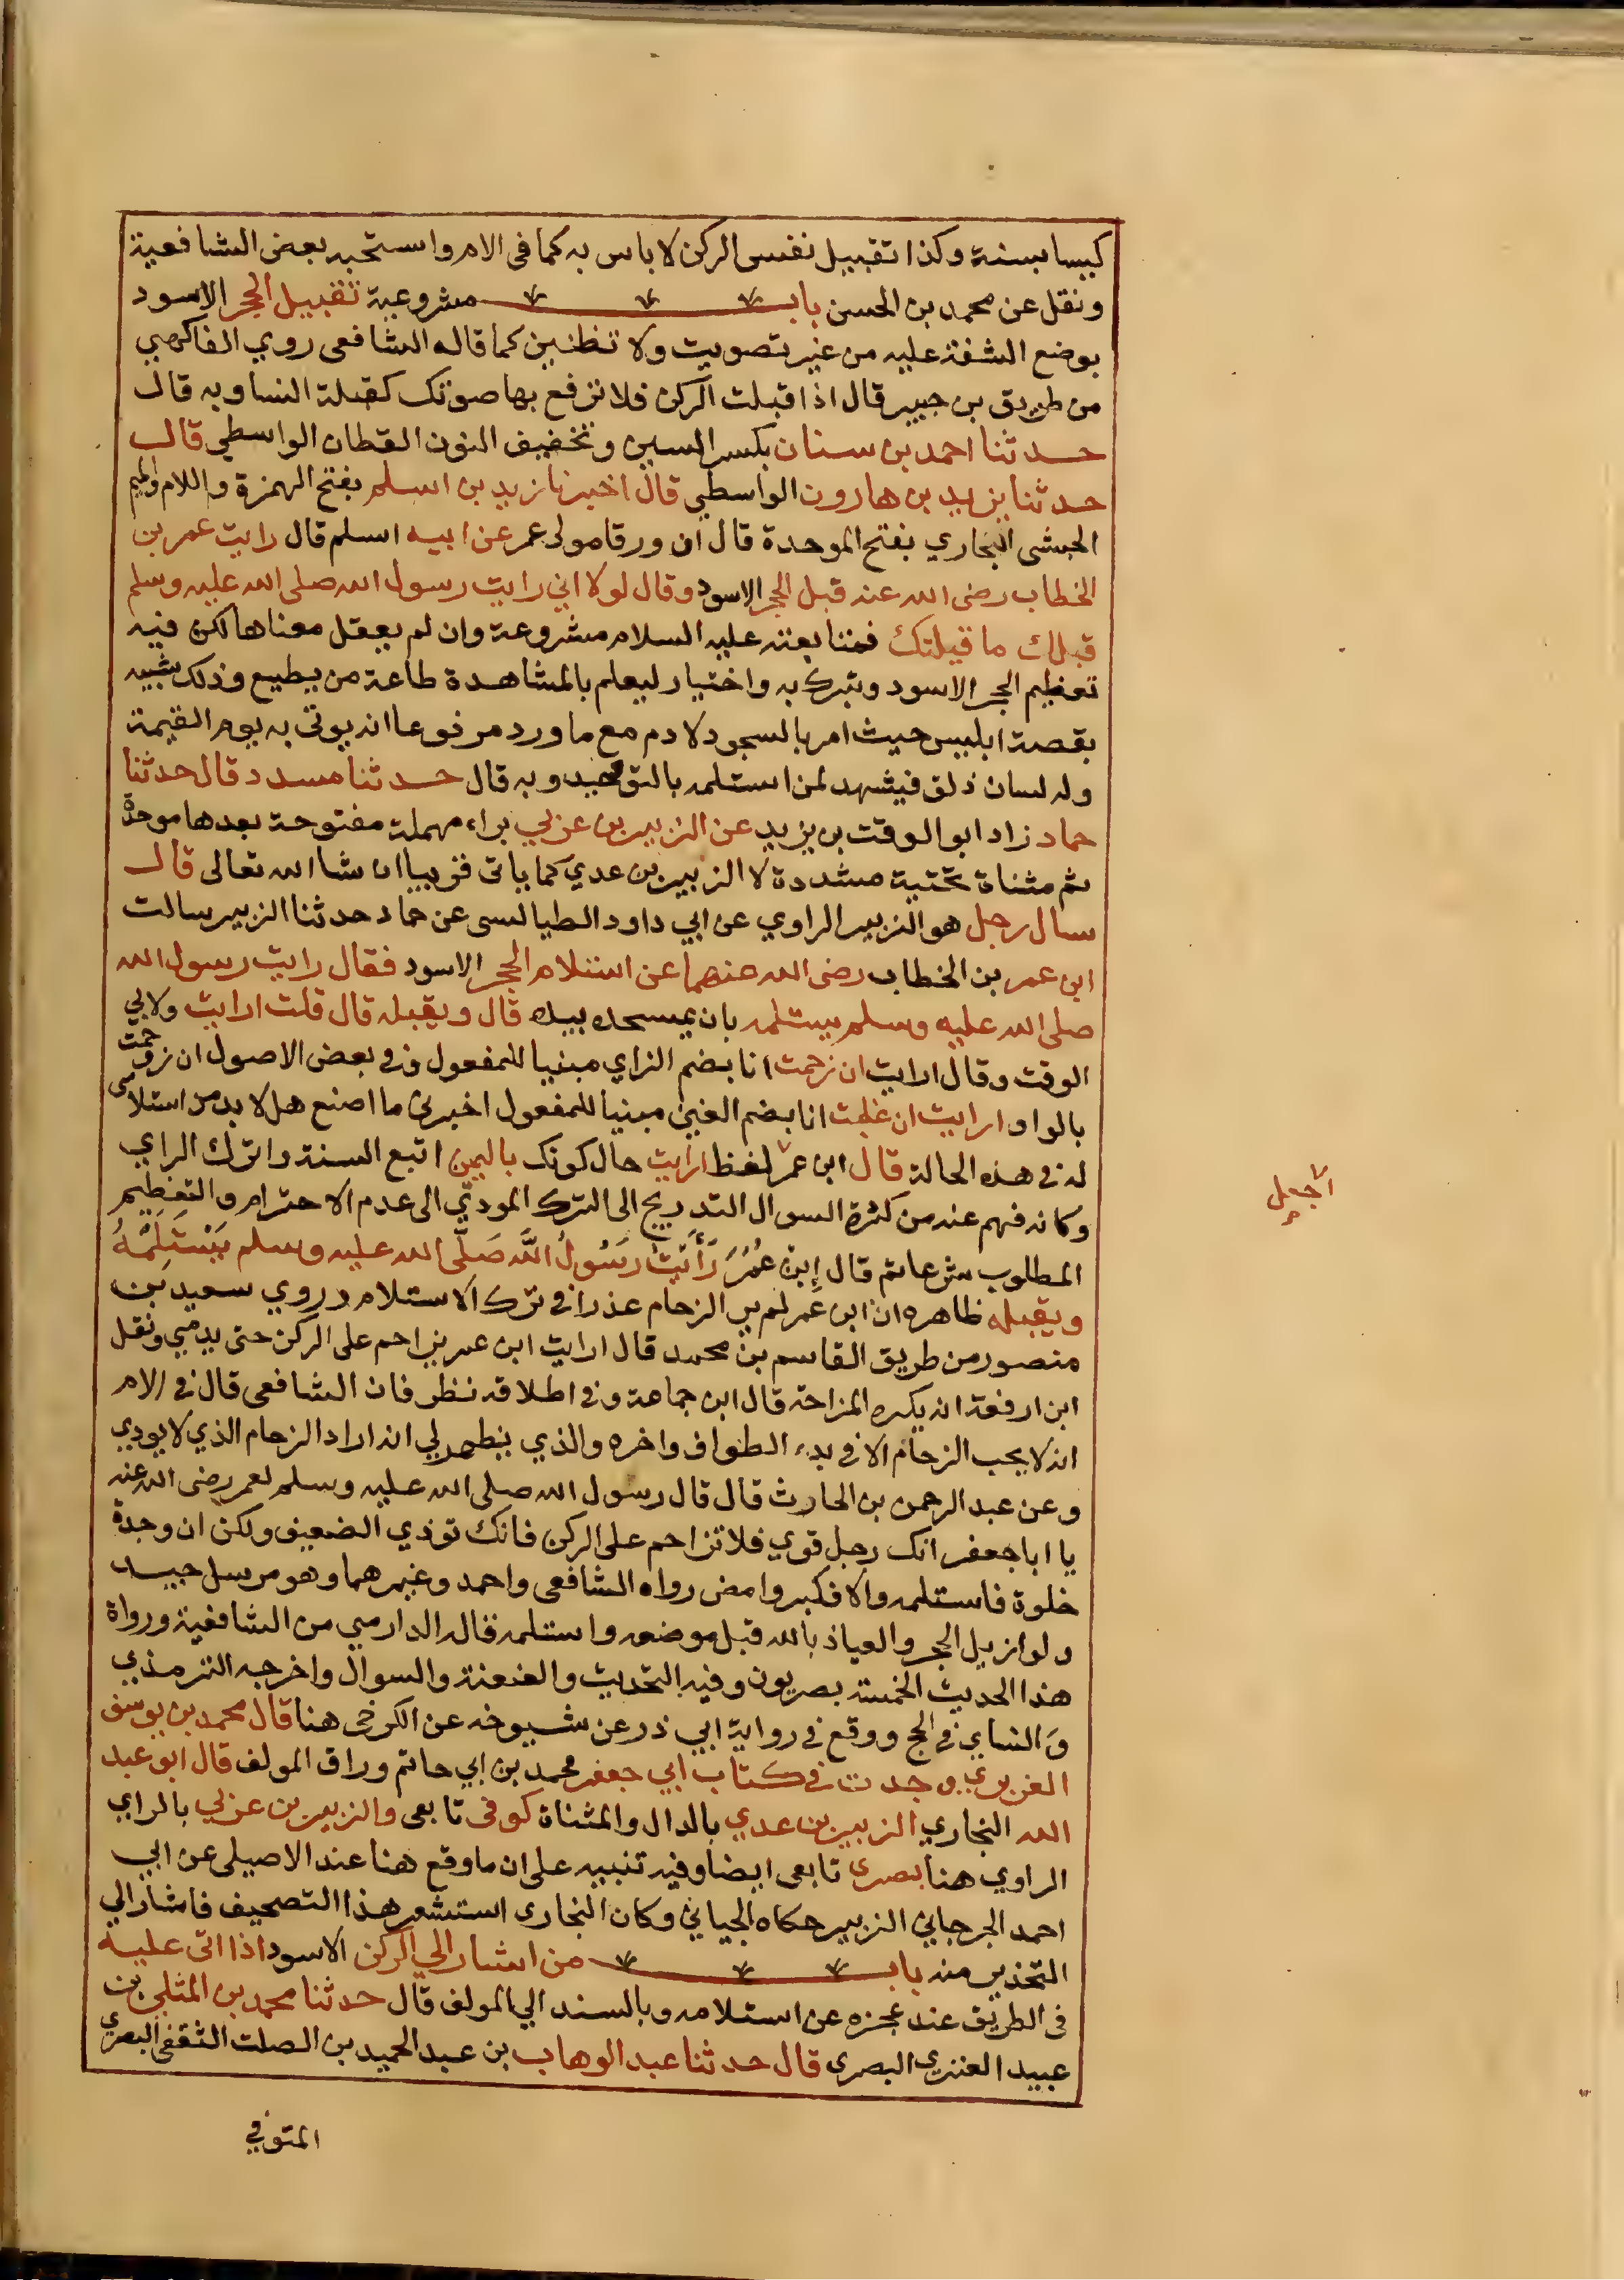 كيسا بسنة وكذا تقبيل نفس الركن لا باس به كما في الام واستحبه بعض الشافعية
ونقل عن محمد بن الحسن باب مشروعية تقبيل الحجر الاسود
بوضع الشفة عليه من غير تصويت ولا تظنين كما قاله الشافعي روي الفاكهي
من طريق بن جبير قال اذا قبلت الركن فلا ترفع بها صوتك كقبلة النسا وبه قال
حدثنا احمد بن سنان بكسر السين وتخفيف النون القطان الواسطي قال
حدثنا يزيد بن هارون الواسطي قال اخبرنا زيد بن اسلم بفتح الهمزة واللام والميم
الحبشى البجاري بفتح الموحدة قال ان ورقا مولى عمر عن ابيه اسلم قال رايت عمر بن
الخطاب رضى الله عنه قبل الحجر الاسود وقال لولا اني رايت رسول الله صلى الله عليه وسلم
قبلك ما قبلتك فمتابعته عليه السلام مشروعة وان لم يعقل معناها لكن فيه
تعظيم الحجر الاسود وتبرك به واختيار ليعلم بالمشاهدة طاعة من يطيع وذلك شبيه
بقصة ابليس حيث امر بالسجود لادم مع ما ورد مرفوعا انه يوتى به يوم القيمة
وله لسان ذلق فيشهد لمن استلمه بالتوحيد وبه قال حدثنا مسدد قال حدثنا
حماد زاد ابو الوقت بن يزيد عن الزبير بن عربي براء مهملة مفتوحة بعدها موحدة
ثم مثناة تحتية مشددة لا الزبير بن عدي كما ياتى قريبا ان شا الله تعالى قال
سال رجل هو الزبير الراوي عن ابي داود الطيالسى عن حماد حدثنا الزبير سالت
ابن عمر بن الخطاب رضى الله عنهما عن استلام الحجر الاسود فقال رايت رسول الله
صلى الله عليه وسلم يستلمه بان يمسحه بيده قال ويقبله قال قلت ارايت ولابي
الوقت وقال ارايت ان زحمت انا بضم الزاي مبنيا للمفعول وفي بعض الاصول ان زوحمت
بالواو ارايت ان غلبت انا بضم الغين مبنيا للمفعول اخبرني ما اصنع هل لا بد من استلامى
له في هذه الحالة قال ابن عمر لفظ ارايت حال كونك باليمن اتبع السنة واترك الراي
اجعل
وكانه فهم عنه من كثرة السوال التدريج الى الترك المودي الى عدم الاحترام والتعظيم
المطلوب شرعا ثم قال إبن عُمَرَ رَأَيْتُ رَسُولُ اللَّه صَلَّى الله عليه وسلم يَسْتَلِمُهُ
ويقبله ظاهره ان ابن عمر لم ير الزحام عذرا في ترك الاستلام وروي سعيد بن
منصور من طريق القاسم بن محمد قال ارايت ابن عمر يزاحم على الركن حتى يدمي ونقل
ابن ارفعة انه يكره المزاحة قال ابن جماعة وفي اطلاقه نظر فان الشافعي قال في الام
انه لا يحب الزحام الا في بدء الطواف واخره والذي يظهر لي انه اراد الزحام الذي لا يودي
وعن عبد الرحمن بن الحارث قال قال رسول الله صلى الله عليه وسلم لعمر رضى الله عنه
يا ابا جعفر انك رجل قوي فلا تزاحم على الركن فانك توذي الضعيف ولكن ان وجدة
خلوة فاستلمه والا فكبر وامض رواه الشافعي واحمد وغيرهما وهو مرسل جيد
ولو ازيل الحجر والعياذ بالله قبل موضعه واستلمه قاله الدارمي من الشافعية ورواة
هذا الحديث الخمسة بصريون وفيه التحديث والعنعنة والسوال واخرجه الترمذي
وَالنساي في الحج ووقع في رواية ابي ذر عن شيوخه عن الكرخى هنا قال محمد بن يوسف
الفربري وجدت في كتاب ابي جعفر محمد بن ابي حاتم وراق المولف قال ابو عبد
الله البخاري الزبير بن عدي بالدال والمثناة كوفي تابعى والزبير بن عربي بالراي
الراوي هنا بصرى تابعى ايضا وفيه تنبيه على ان ما وقع هنا عند الاصيلى عن ابي
احمد الجرجاني الزبير حكاه الجياني وكان البخارى استشعر هذا التصحيف فاشار الي
التحذير منه باب من اشار الي الركن الاسود اذا اتى عليه
في الطريق عند عجزه عن استلامه وبالسند الي المولف قال حدثنا محمد بن المثنى بن
عبيد العنزي البصرى قال حدثنا عبد الوهاب بن عبد الحميد بن الصلت الثقفي البصري
المتوفي